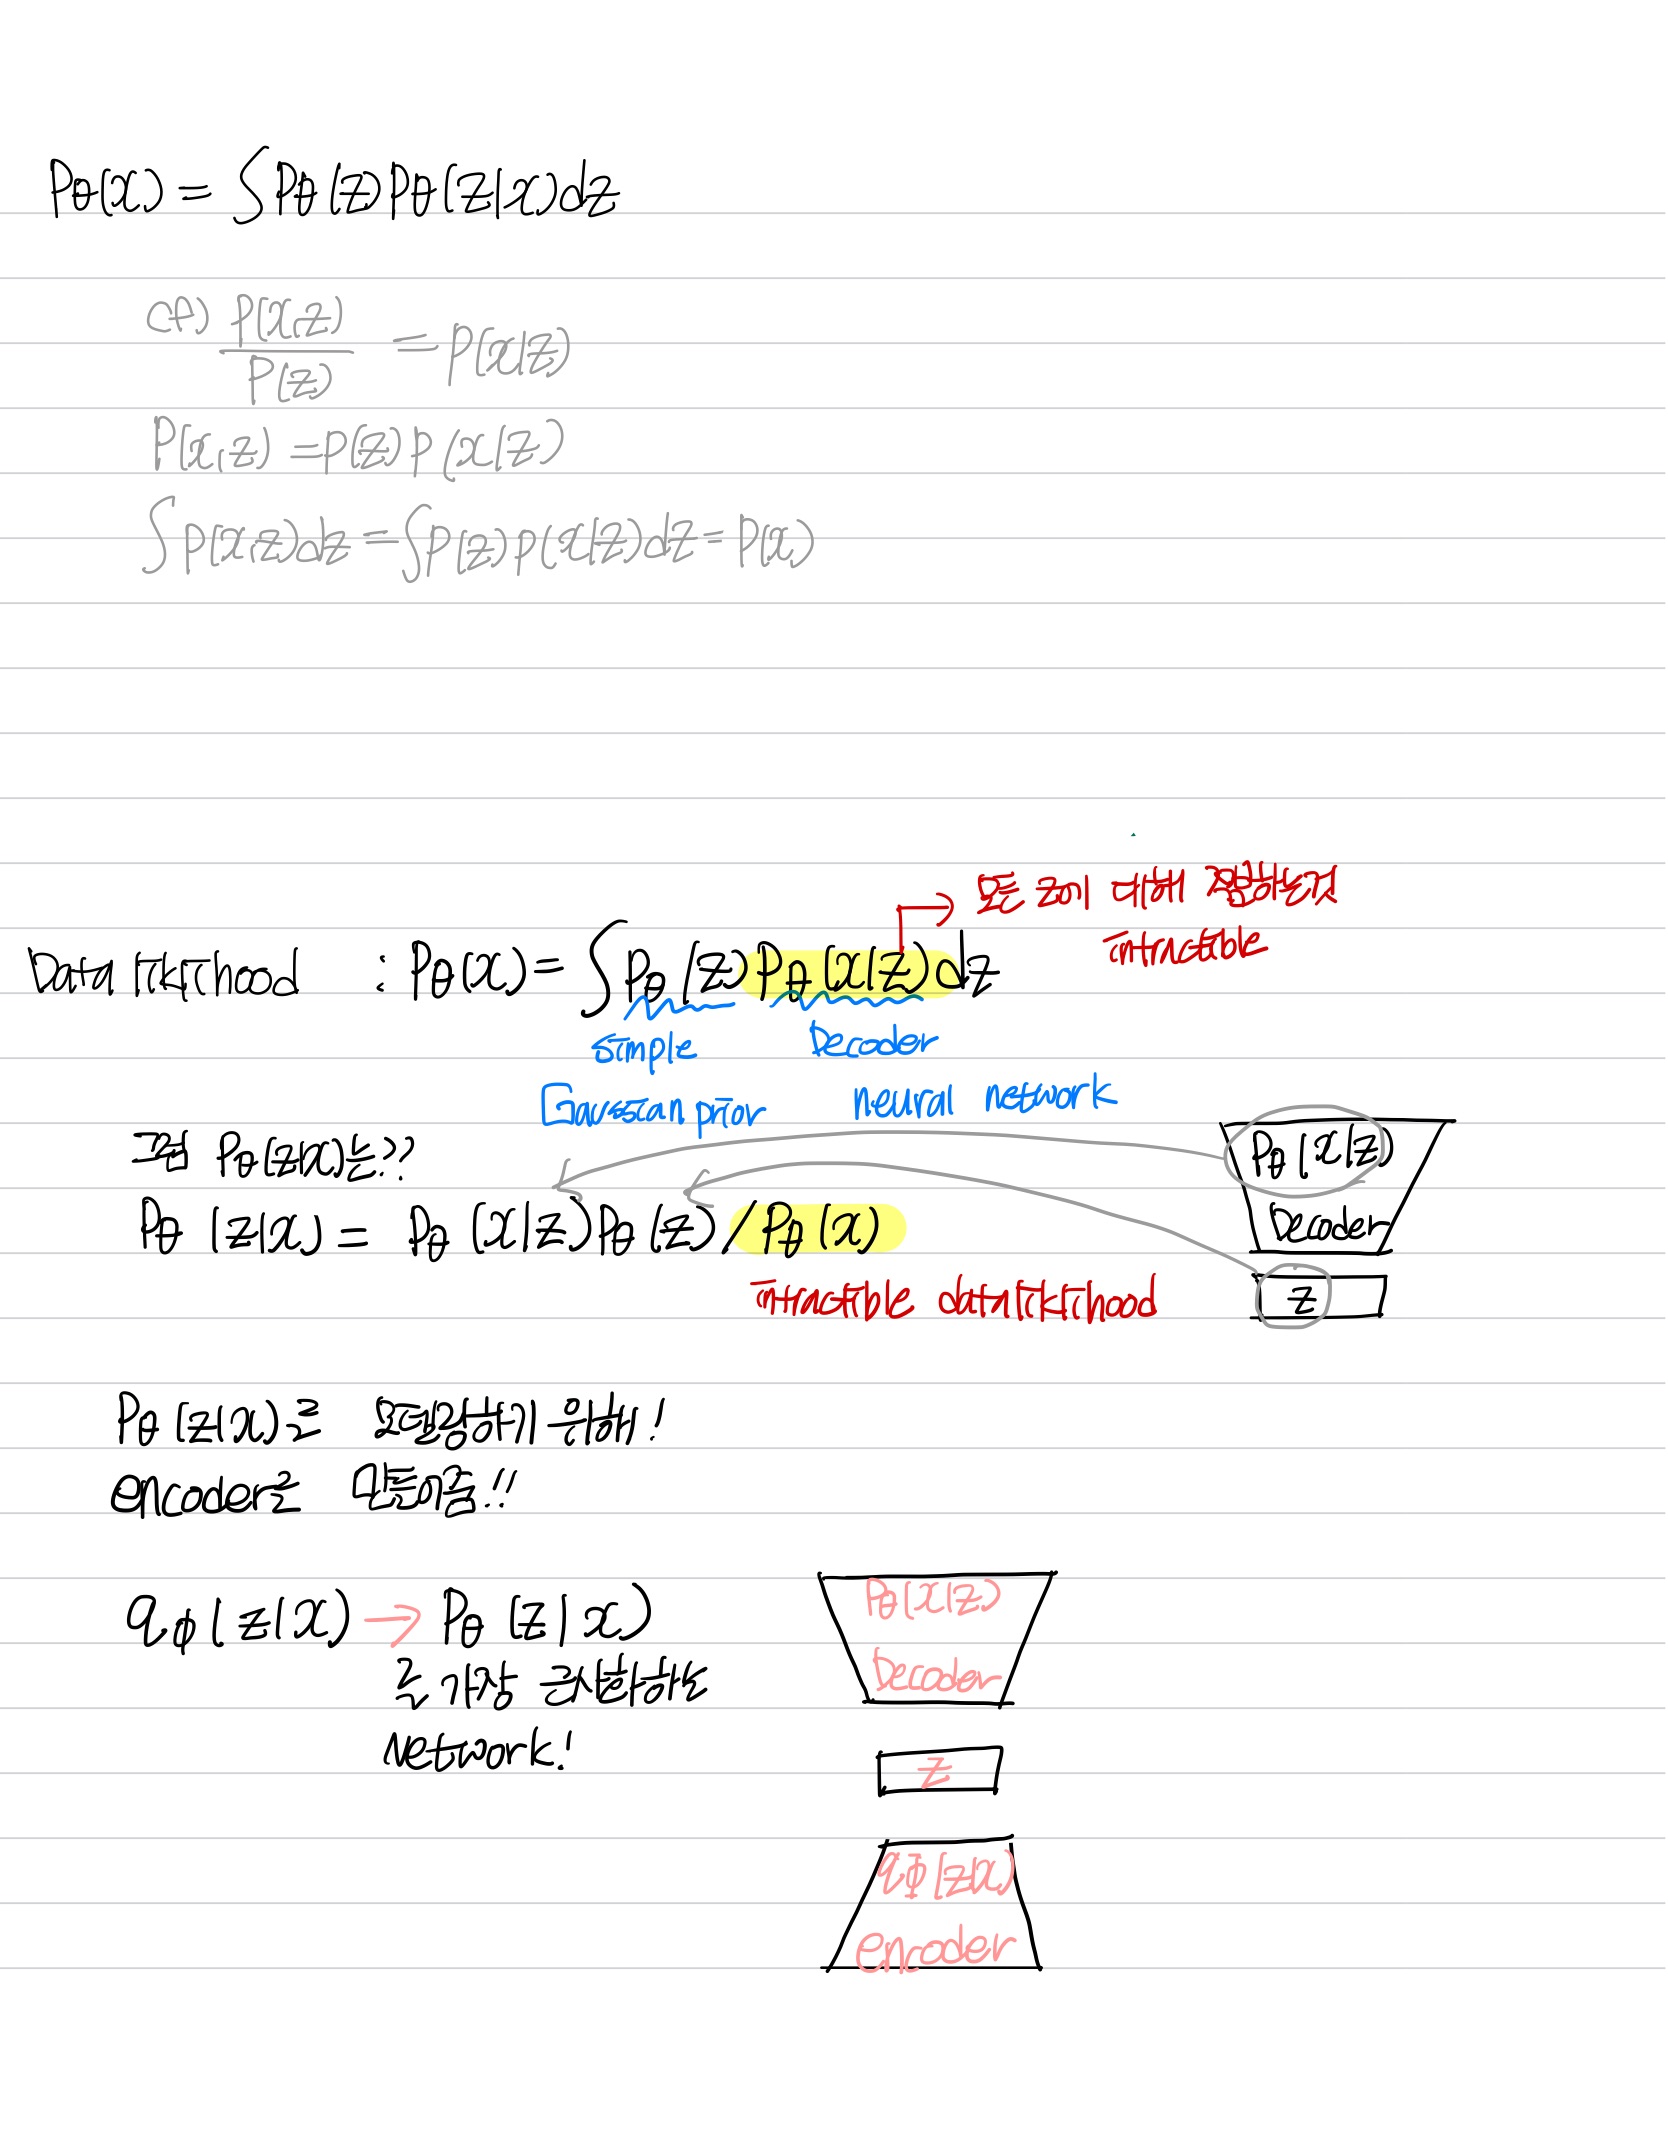 Pθ(x) = ∫Pθ(z)Pθ(z|x)dz
cf) P(x,z)/P(z) = P(x|z)
P(x,z) = P(z)P(x|z)
∫P(x,z)dz = ∫P(z)P(x|z)dz = P(x)
모든 z에 대해 적분하는것
intractible
Data liklihood : Pθ(x) = ∫Pθ(z)Pθ(x|z)dz
simple Decoder
Gaussian prior neural network
그럼 Pθ(z|x)는??
Pθ(z|x) = Pθ(x|z)Pθ(z)/Pθ(x)
intractible data liklihood
Pθ(x|z)
Decoder
z
Pθ(z|x)로 모델링하기 위해!
encoder을 만들어줌!!
qφ(z|x) → Pθ(z|x)
를 가장 근사화하는
Network!
Pθ(x|z)
Decoder
z
qΦ(z|x)
encoder